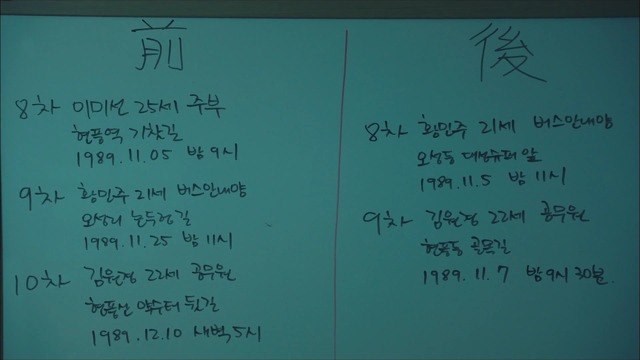 前
8차 이미선 25세 주부
현풍역 기찻길
1989.11.05 밤 9시
9차 황민주 21세 버스안내양
오성리 논두렁길
1989.11.25 밤 11시
10차 김원경 22세 공무원
현풍산 약수터 뒷길
1989.12.10 새벽 5시
後
8차 황민주 21세 버스안내양
오성동 대성슈퍼 앞
1989.11.5 밤 11시
9차 김원경 22세 공무원
현풍동 골목길
1989.11.7 밤 9시 30분